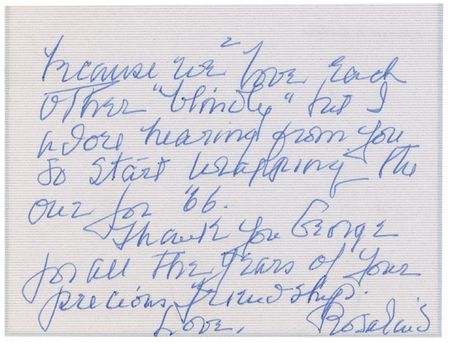 2
because we love each
other "blindly" but I
adore hearing from you
so start wrapping the
one for '66.
Thank you George
for all the years of your
precious friendship.
Love,
Rosalind